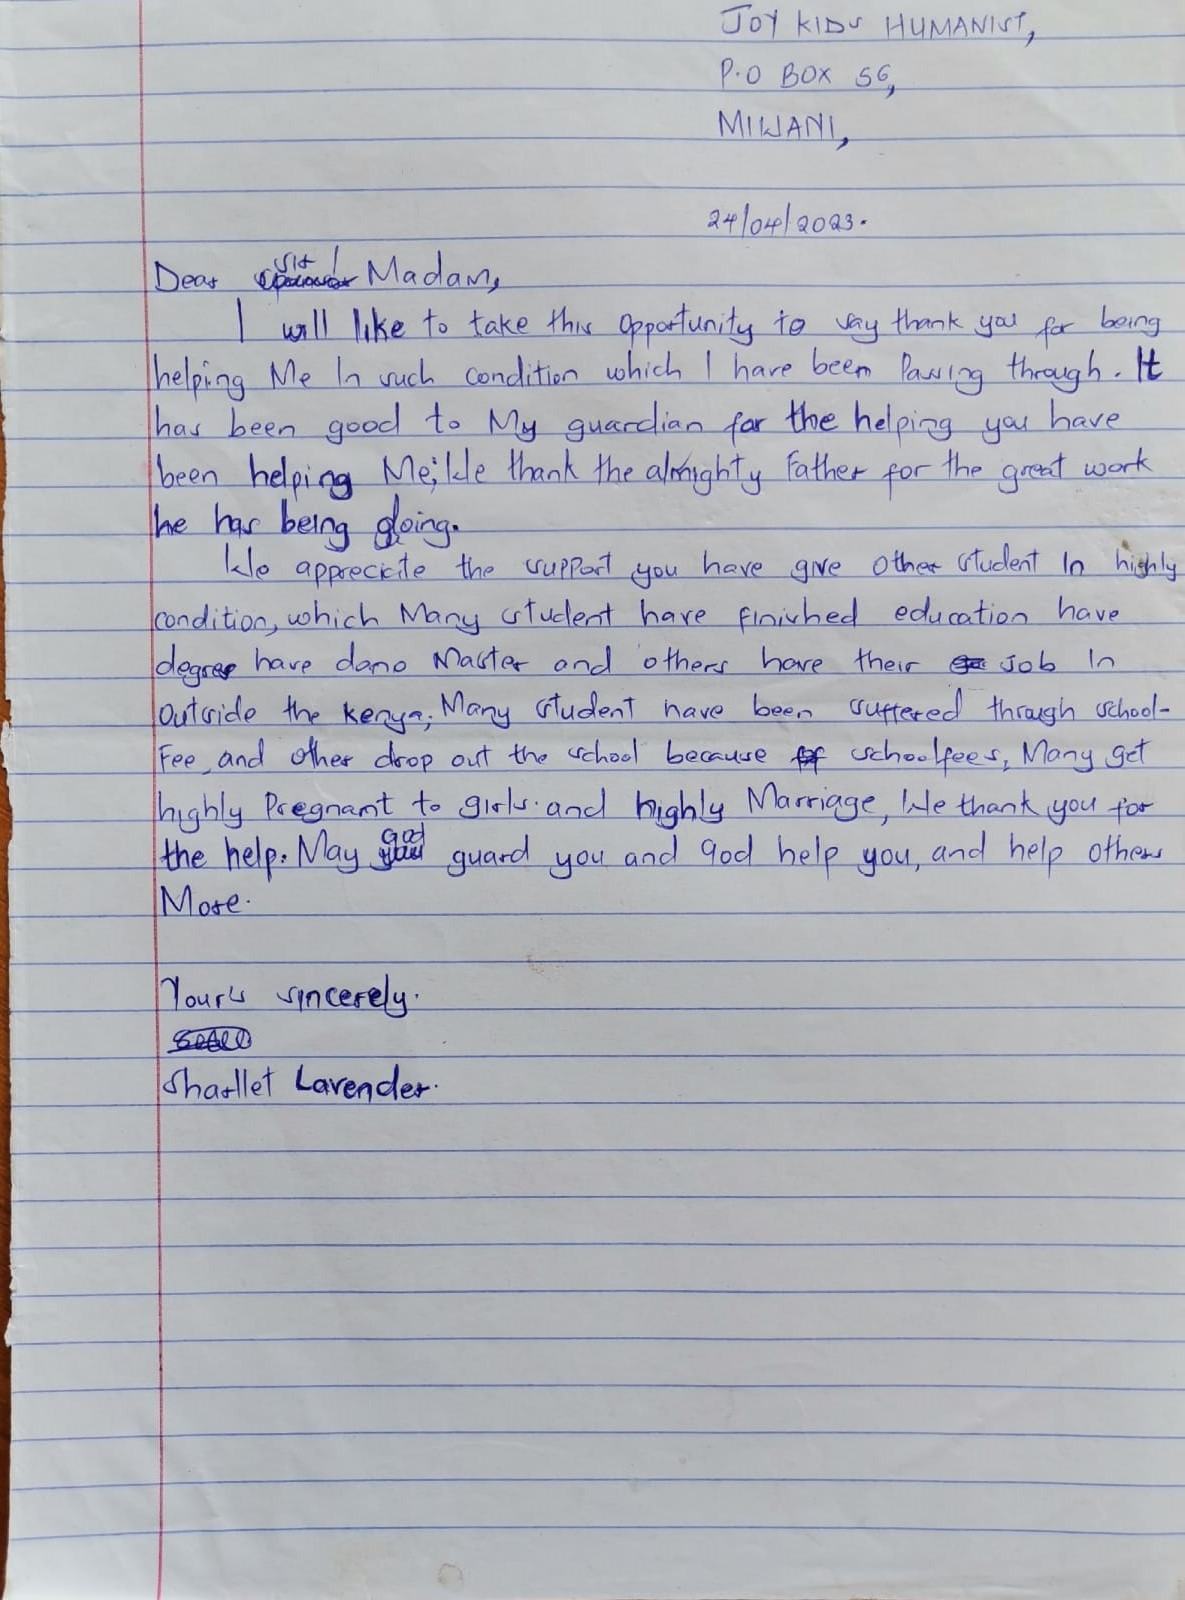 JOY KIDS HUMANIST,
P.O BOX 56,
MIWANI,
24/04/2023.
Dear Sir / Madam,
I will like to take this opportunity to say thank you for being
helping Me In such condition which I have been Passing through. It
has been good to My guardian for the helping you have
been helping Me; We thank the almighty Father for the great work
he has being doing.
We apprecite the support you have give other student In highly
condition, which Many student have finished education have
degree have dano Master and others have their job In
outside the Kenya; Many student have been suffered through school-
Fee, and other drop out the school because of schoolfees, Many get
highly Pregnant to girls. and highly Marriage, We thank you for
the help. May god guard you and god help you, and help others
More.
Your's sincerely.
Sharllet Lavender.